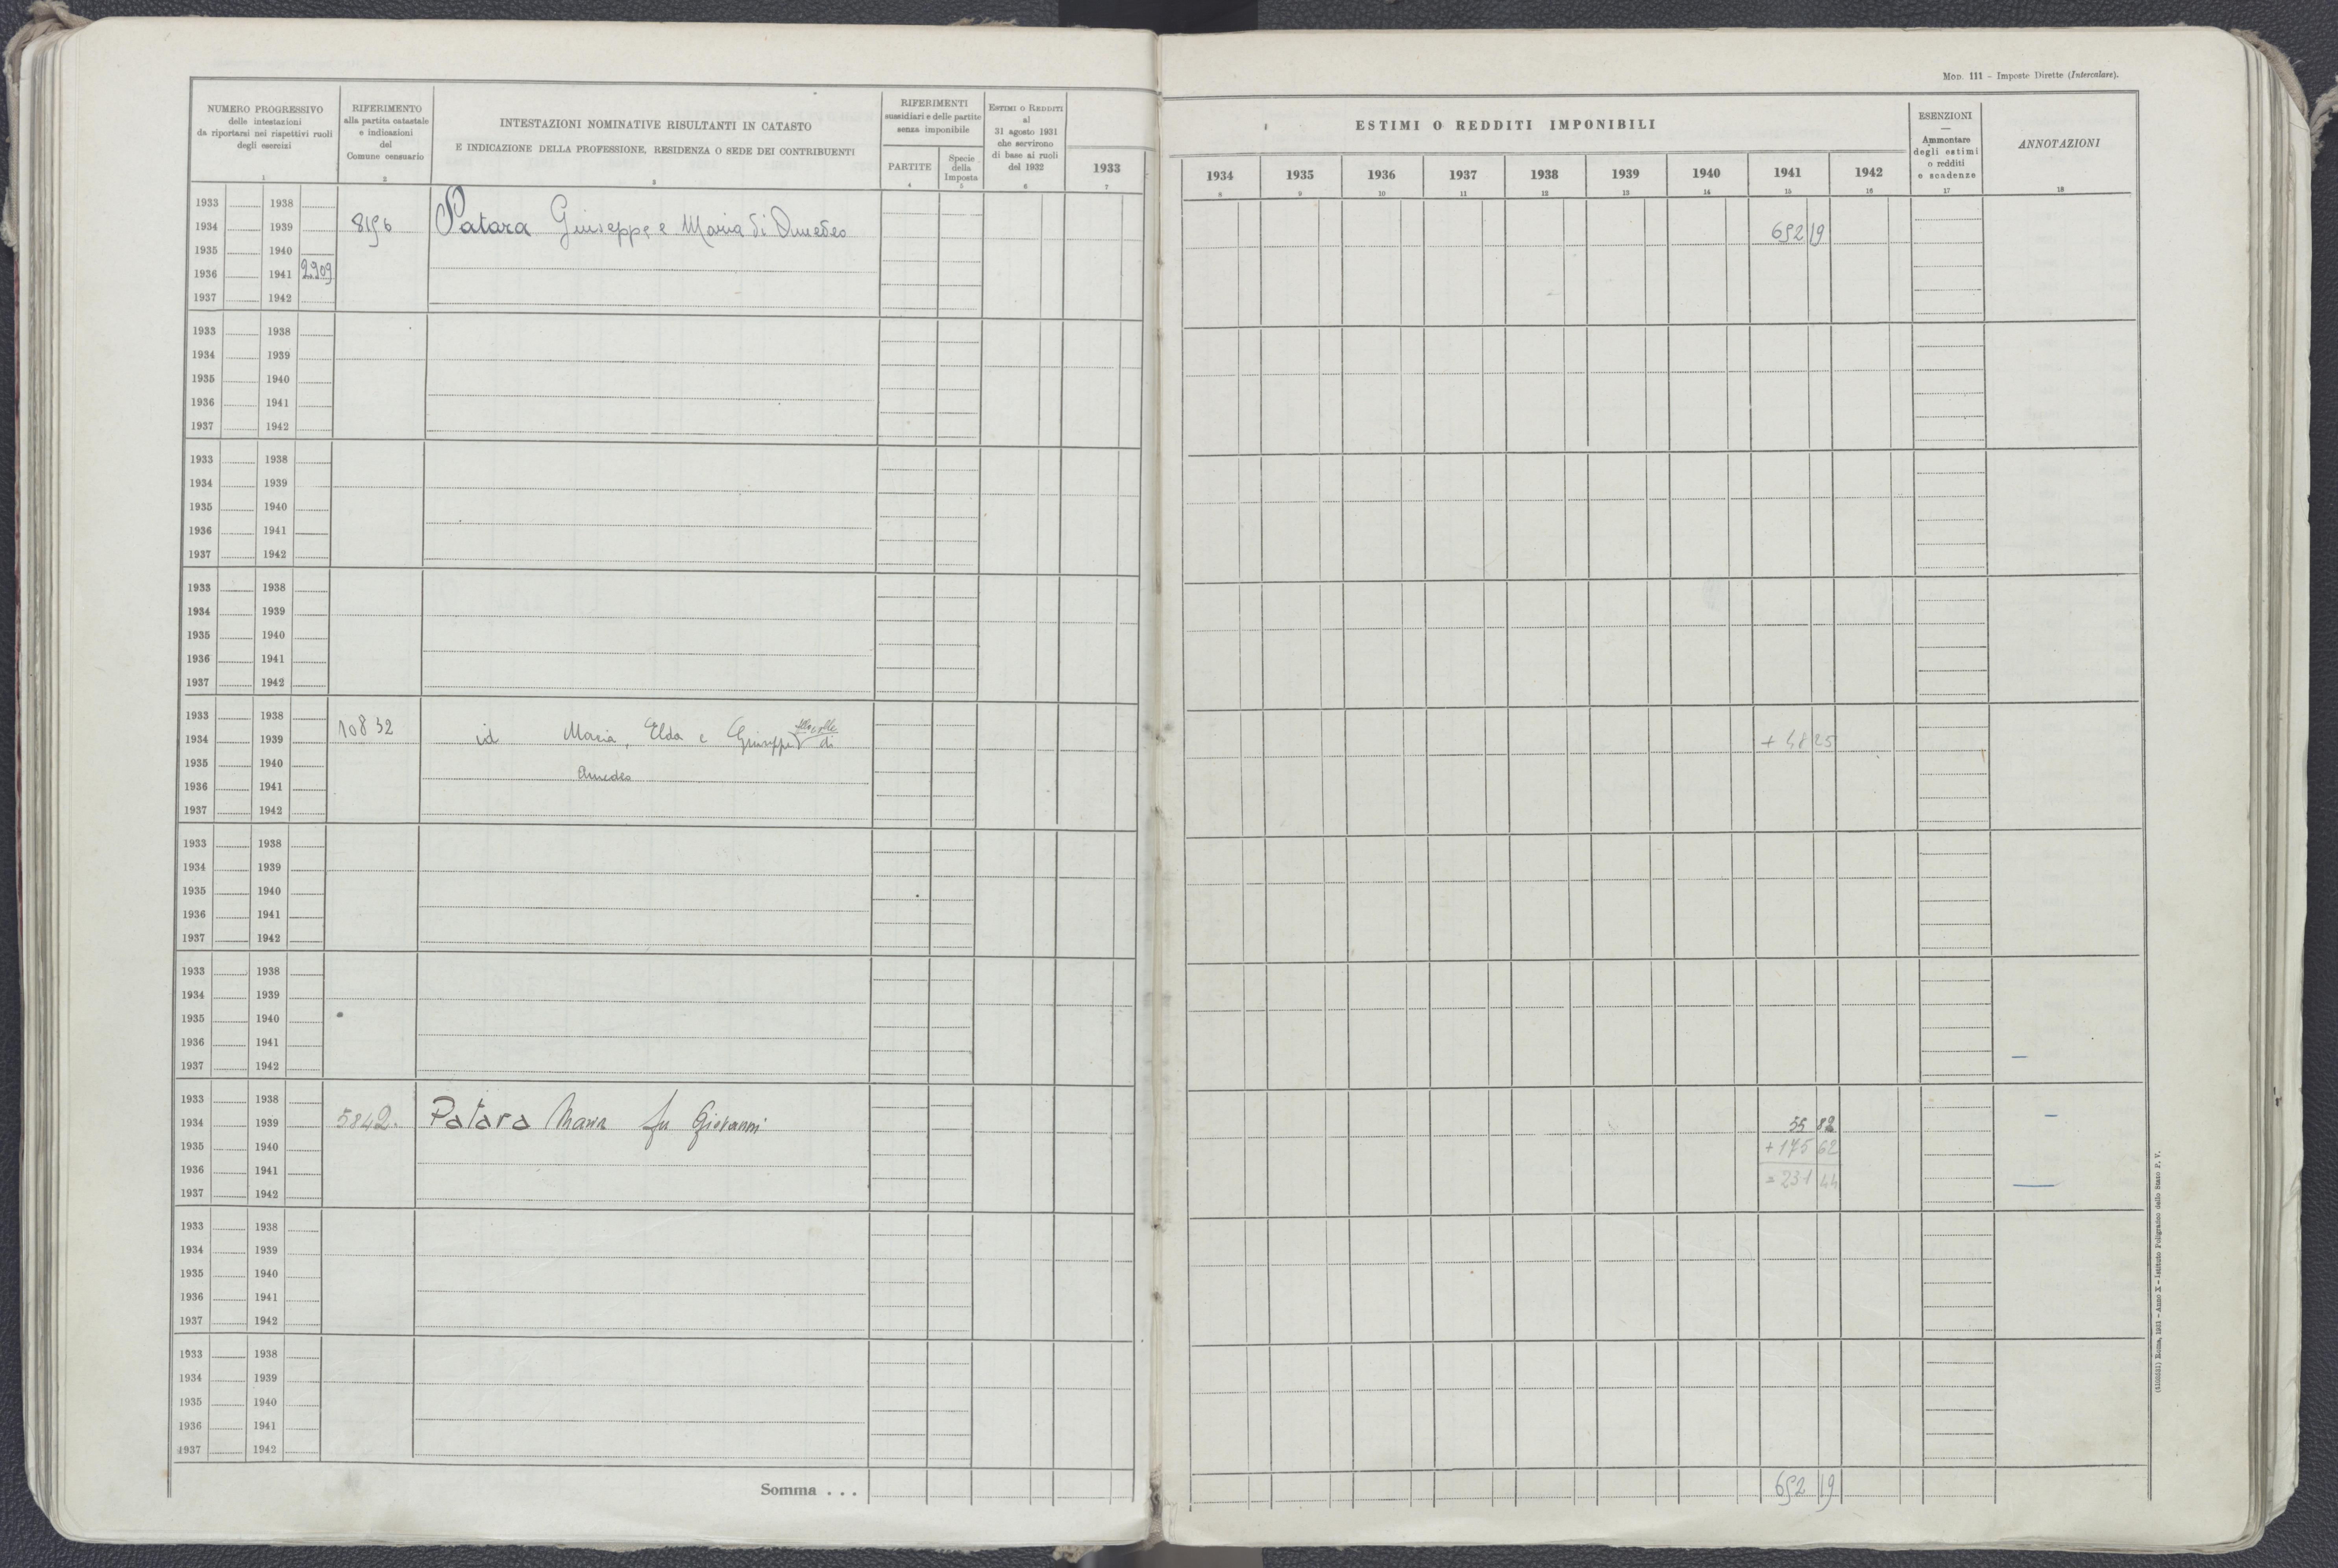 MOD. 111 – Imposte Dirette (Intercalare).
NUMERO PROGRESSIVO
delle intestazioni
da riportarsi nei rispettivi ruoli
degli esercizi
1
RIFERIMENTO
alla partita catastale
e indicazioni
del
Comune censuario
2
INTESTAZIONI NOMINATIVE RISULTANTI IN CATASTO
E INDICAZIONE DELLA PROFESSIONE, RESIDENZA O SEDE DEI CONTRIBUENTI
3
RIFERIMENTI
sussidiari e delle partite
senza imponibile
PARTITE
4
Specie
della
Imposta
5
ESTIMI O REDDITI
al
31 agosto 1931
che servirono
di base ai ruoli
del 1932
6
1933
7
ESTIMI O REDDITI IMPONIBILI
1934 1935 1936 1937 1938 1939 1940 1941 1942
8 9 10 11 12 13 14 15 16
ESENZIONI
—
Ammontare
degli estimi
o redditi
e scadenze
17
ANNOTAZIONI
18
1933 1938
1934 1939 8196 Patara Giuseppe e Maria di Amedeo 692 19
1935 1940
1936 1941 2909
1937 1942
1933 1938
1934 1939
1935 1940
1936 1941
1937 1942
1933 1938
1934 1939
1935 1940
1936 1941
1937 1942
1933 1938
1934 1939
1935 1940
1936 1941
1937 1942
1933 1938 10832
1934 1939 id Maria, Elda e Giuseppe di + 48 25
1935 1940 Amedeo
1936 1941
1937 1942
1933 1938
1934 1939
1935 1940
1936 1941
1937 1942
1933 1938
1934 1939
1935 1940
1936 1941
1937 1942
1933 1938
1934 1939 5842. Patara Maria fu Giovanni 55 82
1935 1940 + 175 62
1936 1941 = 231 44
1937 1942
1933 1938
1934 1939
1935 1940
1936 1941
1937 1942
1933 1938
1934 1939
1935 1940
1936 1941
1937 1942
Somma . . . 692 19
Roma, 1931 – Anno X – Istituto Poligrafico dello Stato P. V.